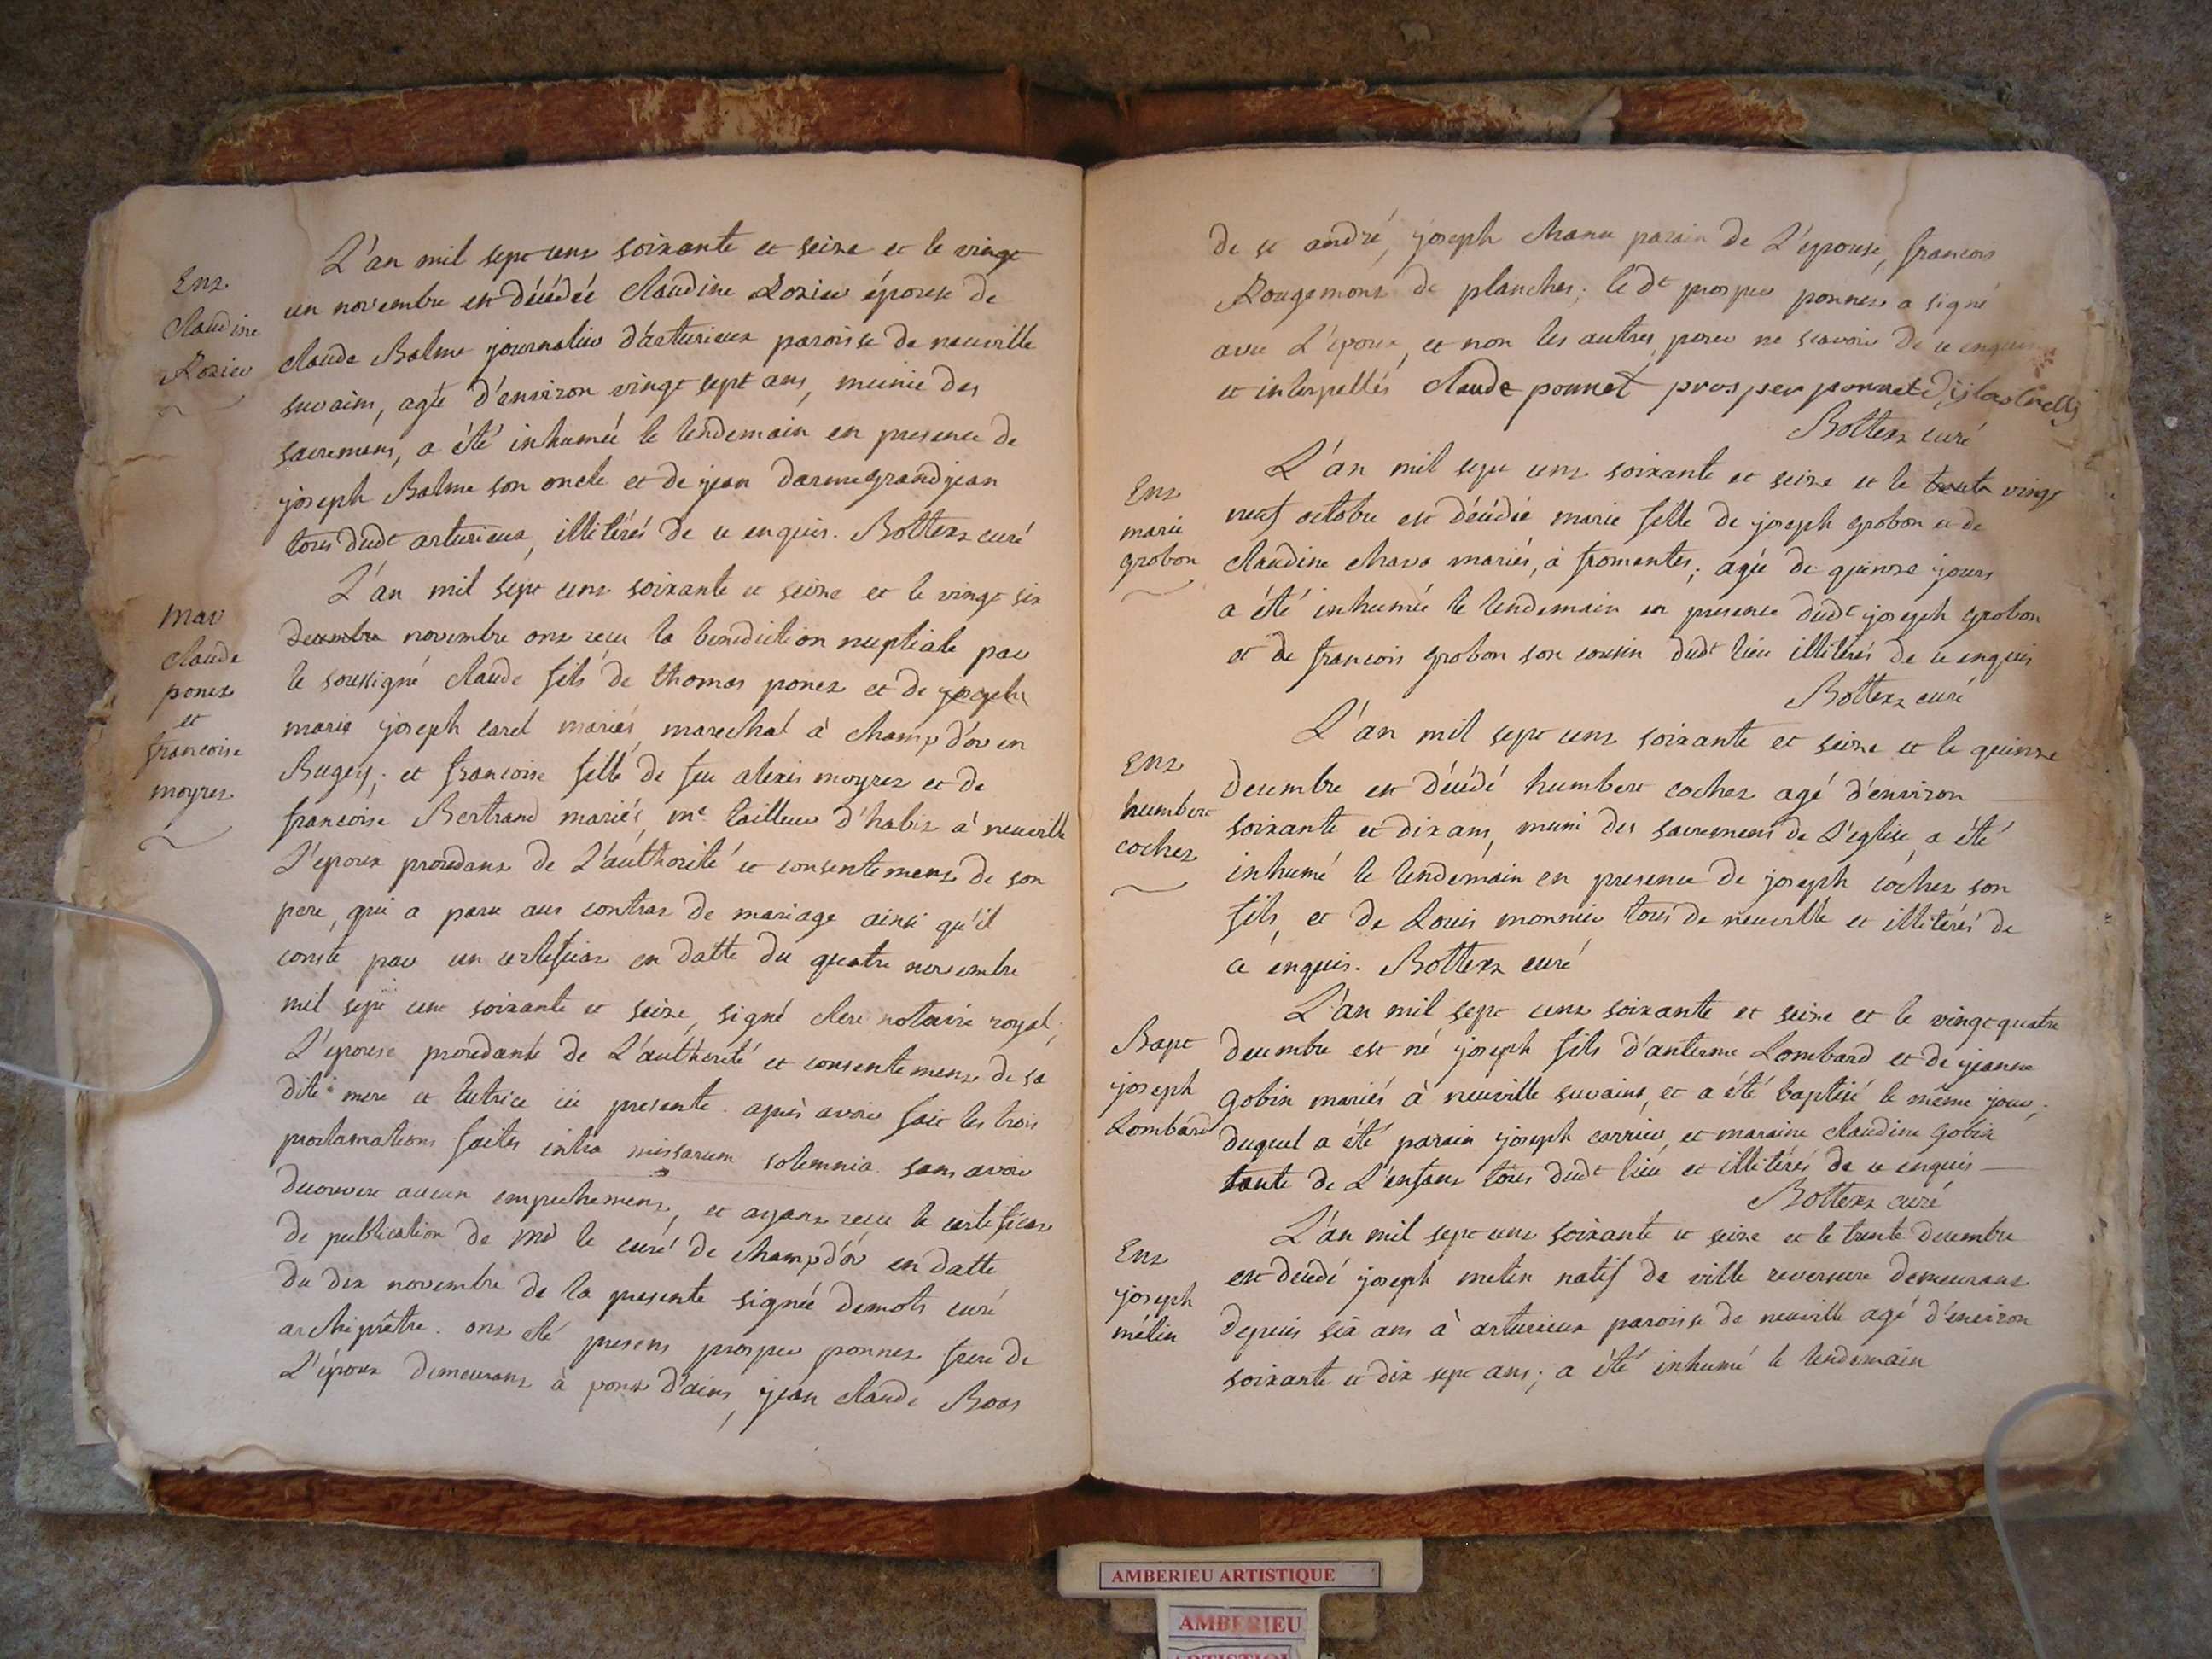 Ent
Claudine
Rozier
L'an mil sept cent soixante et seize et le vingt
un novembre est décédée Claudine Rozier épouse de
Claude Balme journalier d'arturieux paroisse de neuville
survains, agée d'environ vingt sept ans, munie des
sacremens, a été inhumée le lendemain en presence de
joseph Balme son oncle et de jean darme grandjean
tous dudt arturieux, illitérés de ce enquis. Bottex curé
Mar
claude
ponet
et
francoise
moyret
L'an mil sept cent soixante et seize et le vingt six
decembre novembre ont reçu la benediction nuptiale par
le soussigné Claude fils de thomas ponet et de joseph
marie joseph carel mariés, marechal à champd'or en
Bugey; et francoise fille de feu alexis moyret et de
francoise Bertrand mariés, me tailleur d'habit à neuville
L'epoux procedant de L'authorité et consentement de son
pere, qui a paru aus contrat de mariage ainsi qu'il
conste par un certeficat en datte du quatre novembre
mil sept cent soixante et seize, signé clerc notaire royal;
L'epouse procedante de L'authorité et consentement de sa
dite mere et tutrice ici presente. après avoir fait les trois
proclamations faites intra missarum solemnia sans avoir
decouvert aucun empechement, et ayant reçu le certeficat
de publication de mr le curé de champd'or en datte
du dix novembre de la presente signée demots curé
archiprêtre. ont été presens prosper ponnet frere de
L'époux demeurant à pont d'ains, jean claude Boas
de st andré, joseph chanu parain de L'epouse, francois
Rougemont de planches; le dt prosper ponnet a signé
avec L'epoux, et non les autres, pour ne scavoir de ce enquis
et interpellés claude ponnet prosper ponnet
Bottex curé
Ent
marie
grobon
L'an mil sept cent soixante et seize et le trente vingt
neuf octobre est décédée marie fille de joseph grobon et de
Claudine chavo mariés, à fromentes; agée de quinze jours
a été inhumée le lendemain en presence dudt joseph grobon
et de francois grobon son cousin dudt lieu illitérés de ce enquis
Bottex curé
Ent
humbert
cochet
L'an mil sept cent soixante et seize et le quinze
decembre est décédé humbert cochet agé d'environ
soixante et dix ans, muni des sacremens de L'eglise, a été
inhumé le lendemain en presence de joseph cochet son
fils, et de Louis monnier tous de neuville et illitérés de
ce enquis. Bottex curé
Bapt
joseph
Lombard
L'an mil sept cent soixante et seize et le vingt quatre
decembre est né joseph fils d'anterme Lombard et de jeanne
gobin mariés à neuville survains, et a été baptisé le même jour;
duquel a été parain joseph carrier, et maraine Claudine gobin
tante de L'enfant tous dudt lieu et illitérés de ce enquis
Bottex curé
Ent
joseph
mélin
L'an mil sept cent soixante et seize et le trente decembre
est decédé joseph melin natif de ville reversure demeurant
depuis six ans à arturieux paroisse de neuville agé d'environ
soixante et dix sept ans; a été inhumé le lendemain
AMBERIEU ARTISTIQUE
AMBERIEU